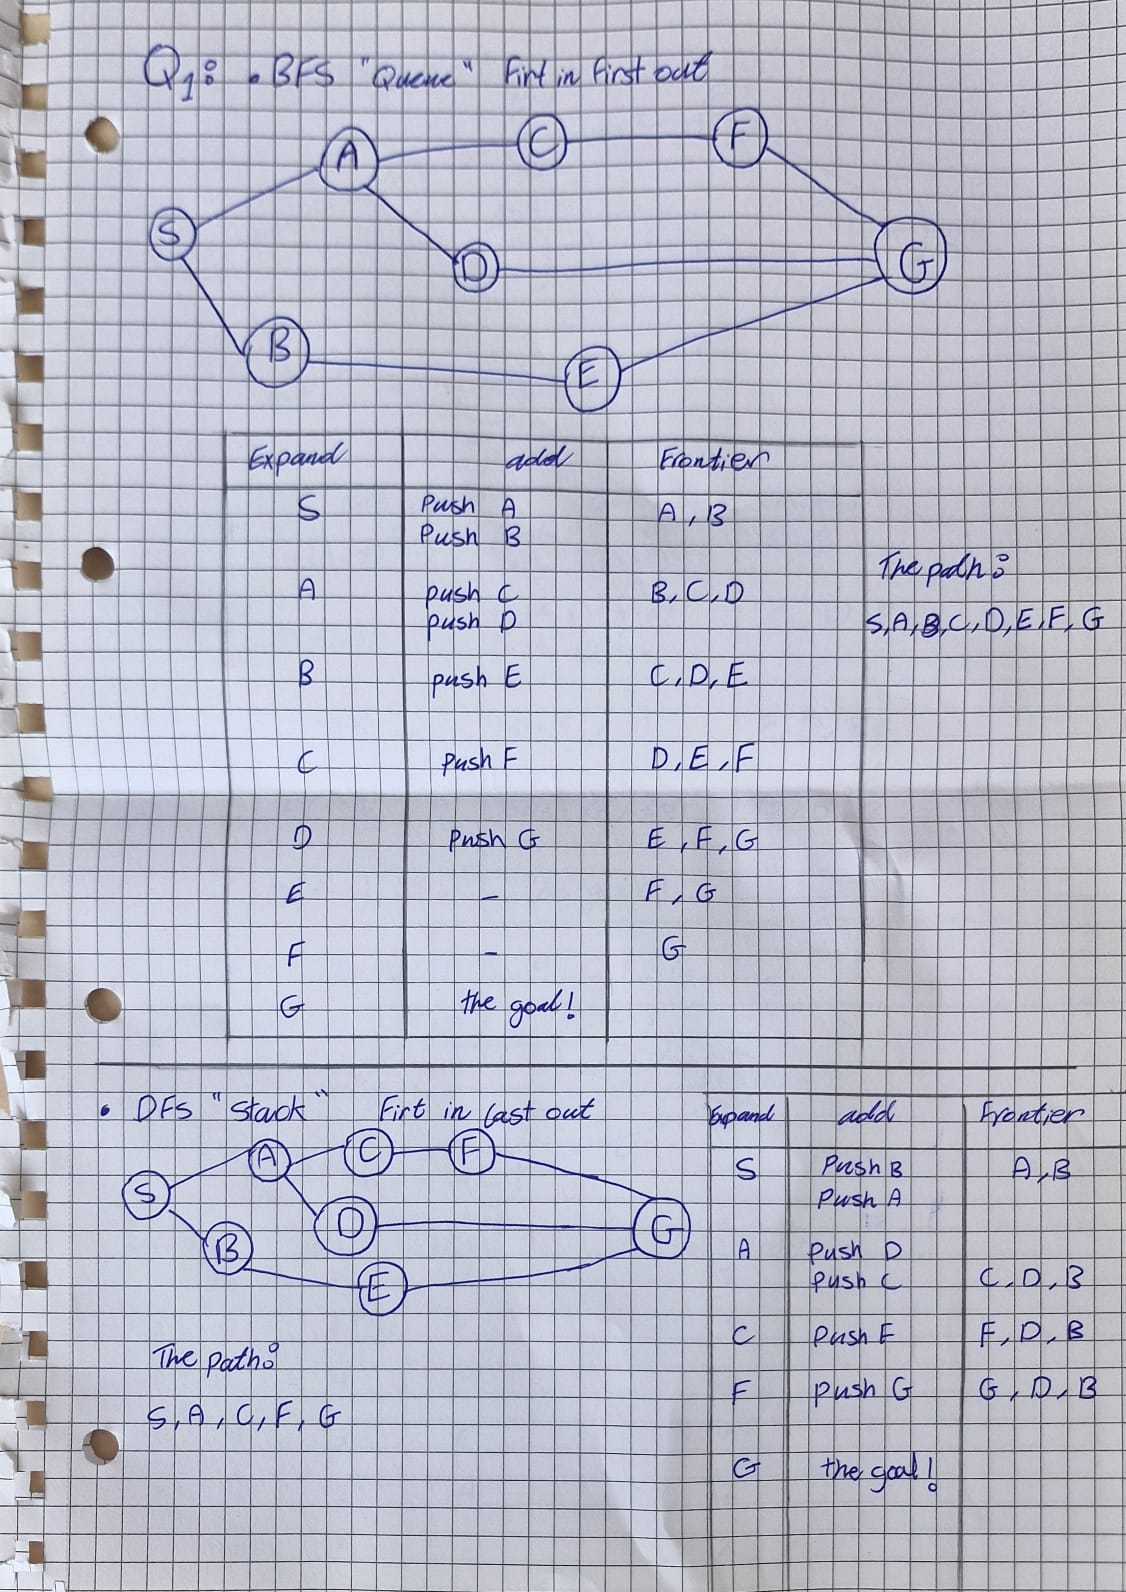 Q1: • BFS "Queue" Firt in first out
A C F
S D G
B E
Expand add Frontier
S Push A A, B
Push B
The path:
A push C B, C, D
push D
S, A, B, C, D, E, F, G
B push E C, D, E
C push F D, E, F
D push G E, F, G
E - F, G
F - G
G the goal!
• DFS "Stack" Firt in last out
A C F
S D G
B E
The path:
S, A, C, F, G
Expand add Frontier
S Push B A, B
Push A
A push D
push C C, D, B
C push F F, D, B
F push G G, D, B
G the goal!